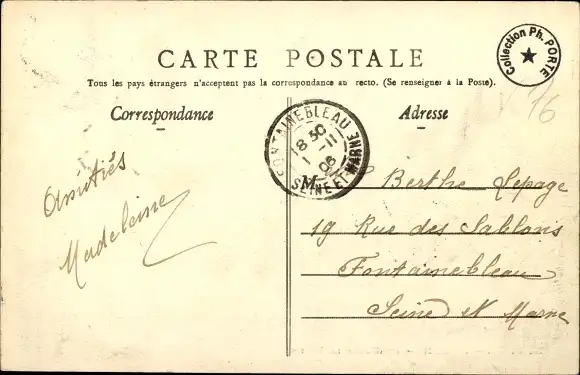 Collection Ph. PORTE
CARTE POSTALE
Tous les pays étrangers n'acceptent pas la correspondance au recto. (Se renseigner à la Poste).
Correspondance
Adresse
16
FONTAINEBLEAU
18 30
1 - 11
06
SEINE-ET-MARNE
Amitiés
Madeleine
M Berthe Lepage
19 Rue des Sablons
Fontainebleau
Seine et Marne